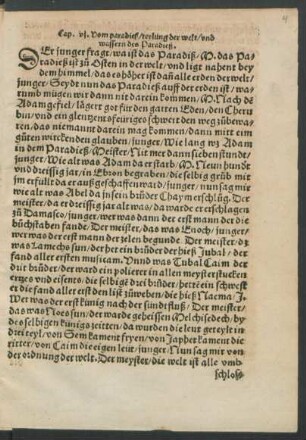 Cap. vj. Vom paradiß/teilung der welt/vnd
wassern des Paradiß.
DEr junger fragt/ wa ist das Paradiß/ M. das Pa-
radieß ist zů Osten in der welt/ vnd ligt nahent bey
dem himmel/ das es höher ist dañ alle erden der welt/
junger/ Seydt nun das Paradiß auff der erden ist/ wa-
rumb mügen wir dann nit darein kommen/ M. Nach dē
Adam gefiel/ lägert got für den garten Eden/ den Cheru
bin/ vnd ein glentzens schweert den weg zůbewa-
ren/ das niemant darein mag kommen/ dann mit eim
gůten wircken des glauben/ junger/ Wie lang wz Adam
in dem Paradieß/ Meister/ Nit mer dann siben stund/
junger/ Wie alt was Adam da er starb/ M. Neun hundr
vnd dreissig jar/ in Ebron begraben/ die selbig grůb mit
jm erfült da er auß geschaffen ward/ junger/ nun sag mir
wie alt was Abel da jn sein brůder Chaym erschlůg. Der
meister/ da er dreissig jar alt was/ do ward er erschlagen
zů Damasco/ junger/ wer was der erst mann der die
bůchstaben fande. Der meister/ das was Enoch/ junger/
wer was der erst mann der zelen begunde. Der meister/ dz
was Lamechs sun/ der het ein brůder der hieß Jubal/ der
fand aller ersten musicam. Vnnd was Tubal Caim der
drit brůder/ der ward ein polierer in allen meysterstucken
ertzes vnd eisens/ die selbig drey brůder/ hett ein schwest
er die fand alle erst den list zůweben/ die hieß Naema/ J.
Wer was der erst künig nach der sündtfluß/ Der meister/
das was Noes sun/ der warde geheissen Melchisedech/ by
des selbigen künigs zeitten/ da wurden die leut geteylt in
drei teyl/ von Sem kament fryen/ von Japhet kament die
ritter/ von Caim die eigen leut/ junger/ Nun sag mir von
der ordnung der welt. Der meyster/ die welt ist alle vmb
schloss-